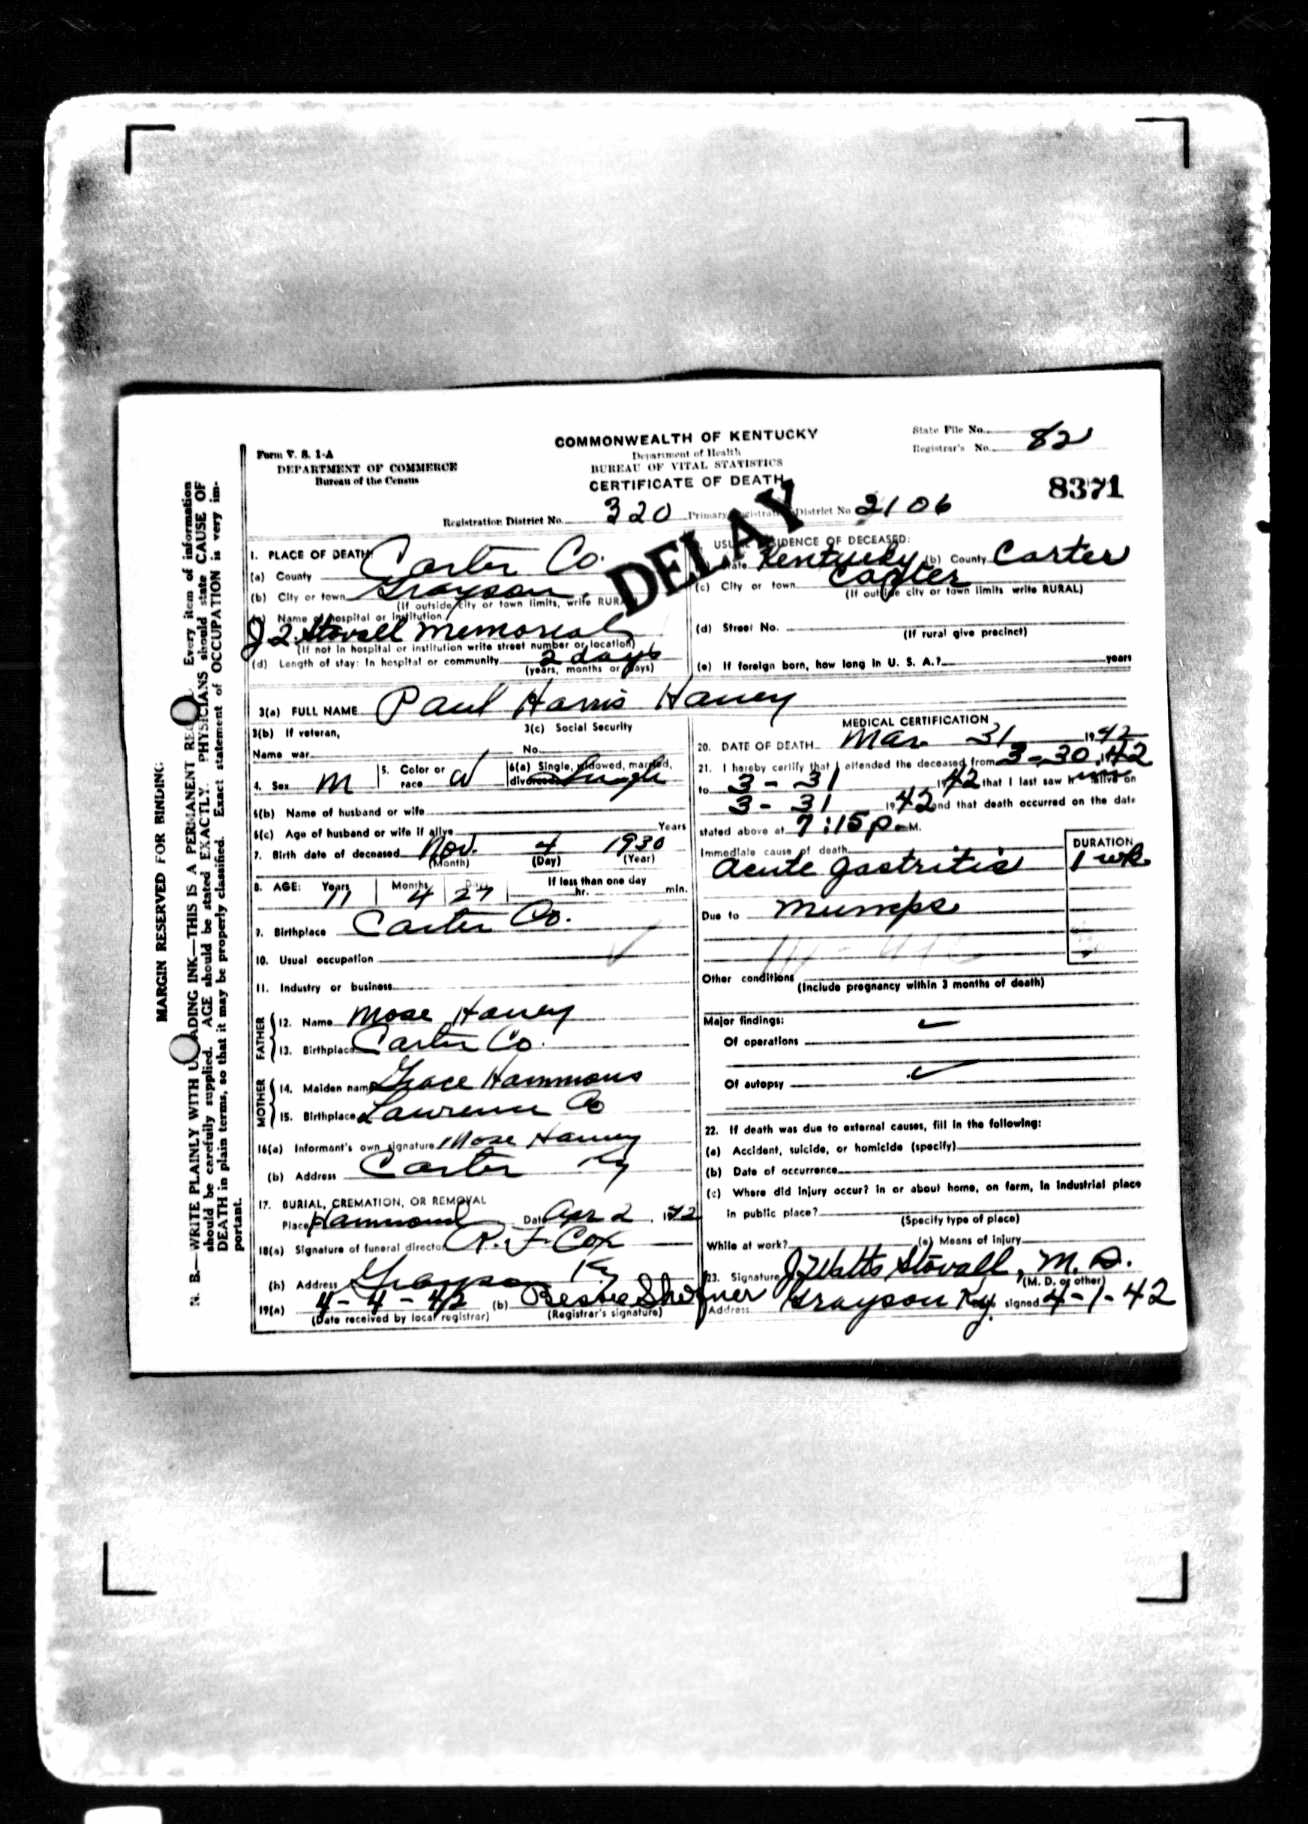 State File No.
COMMONWEALTH OF KENTUCKY
Registrar's No. 82
Form V. S. 1-A
Department of Health
DEPARTMENT OF COMMERCE
BUREAU OF VITAL STATISTICS
Bureau of the Census
CERTIFICATE OF DEATH
8371
Registration District No. 320 Primary Registration District No 2106
DELAY
1. PLACE OF DEATH:
(a) County Carter Co.
(b) City or town Grayson.
(If outside city or town limits, write RURAL)
Name of hospital or institution
Stovall Memorial
(If not in hospital or institution write street number or location)
(d) Length of stay: In hospital or community 2 days
(years, months or days)
USUAL RESIDENCE OF DECEASED:
State Kentucky (b) County Carter
(c) City or town Carter
(If outside city or town limits write RURAL)
(d) Street No.
(If rural give precinct)
(e) If foreign born, how long in U. S. A.? years
3(a) FULL NAME Paul Harris Haney
3(b) If veteran,
Name war
3(c) Social Security
No.
4. Sex M
5. Color or race W
6(a) Single, widowed, married, divorced Single
6(b) Name of husband or wife
6(c) Age of husband or wife if alive Years
7. Birth date of deceased Nov. 4 1930
(Month) (Day) (Year)
8. AGE: Years 11 Months 4 Days 27 If less than one day hr. min.
9. Birthplace Carter Co.
10. Usual occupation
11. Industry or business
FATHER
12. Name Mose Haney
13. Birthplace Carter Co.
MOTHER
14. Maiden name Grace Hammons
15. Birthplace Lawrence Co
16(a) Informant's own signature Mose Haney
(b) Address Carter Ky
17. BURIAL, CREMATION, OR REMOVAL
Place Hammond Date Apr 2, 1942
18(a) Signature of funeral director R. F. Cox
(b) Address Grayson Ky
19(a) 4-4-42 (b) Bessie
(Date received by local registrar) (Registrar's signature)
MEDICAL CERTIFICATION
20. DATE OF DEATH Mar 31 1942
21. I hereby certify that I attended the deceased from 3-30, 1942
to 3-31 1942 that I last saw h alive on
3-31 1942 and that death occurred on the date
stated above at 7:15 P.M.
DURATION
Immediate cause of death
acute gastritis 1 wk
Due to mumps
Other conditions
(Include pregnancy within 3 months of death)
Major findings:
Of operations
Of autopsy
22. If death was due to external causes, fill in the following:
(a) Accident, suicide, or homicide (specify)
(b) Date of occurrence
(c) Where did injury occur? in or about home, on farm, in industrial place
in public place?
(Specify type of place)
While at work? (e) Means of injury
23. Signature J Watts Stovall, M. D.
(M. D. or other)
Address Grayson Ky. signed 4-1-42
MARGIN RESERVED FOR BINDING
N. B.—WRITE PLAINLY WITH UNFADING INK—THIS IS A PERMANENT RECORD. Every item of information
should be carefully supplied. AGE should be stated EXACTLY. PHYSICIANS should state CAUSE OF
DEATH in plain terms, so that it may be properly classified. Exact statement of OCCUPATION is very im-
portant.